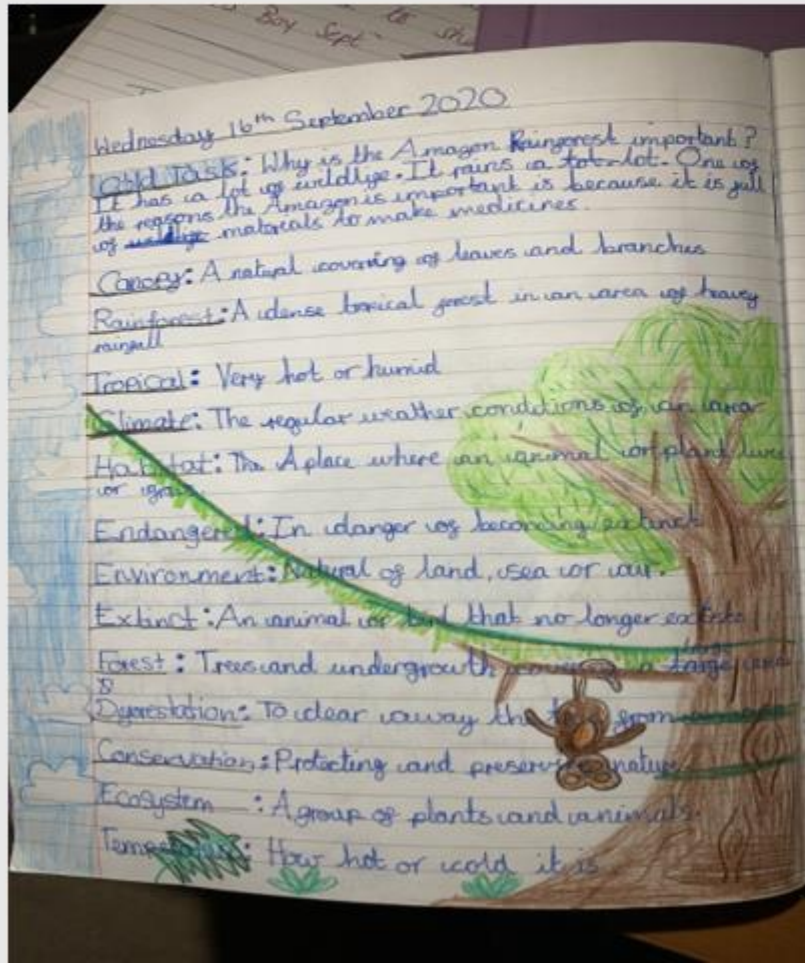 to stu
Boy Sept
Wednesday 16th September 2020
Cold Task: Why is the Amazon Rainforest important?
It has a lot of wildlife. It rains a tot lot. One of
the reasons the Amazon is important is because it is full
of materials to make medicines.
Canopy: A natural covering of leaves and branches
Rainforest: A dense tropical forest in an area of heavy
rainfall
Tropical: Very hot or humid
Climate: The regular weather conditions of an area
Habitat: The A place where an animal or plant lives
or grows
Endangered: In danger of becoming extinct
Environment: Natural of land, sea or air.
Extinct: An animal or bird that no longer exists
large
Forest: Trees and undergrowth covering a large area
Deforestation: To clear away the from
Conservation: Protecting and preserving nature
Ecosystem : A group of plants and animals.
Temperature: How hot or cold it is